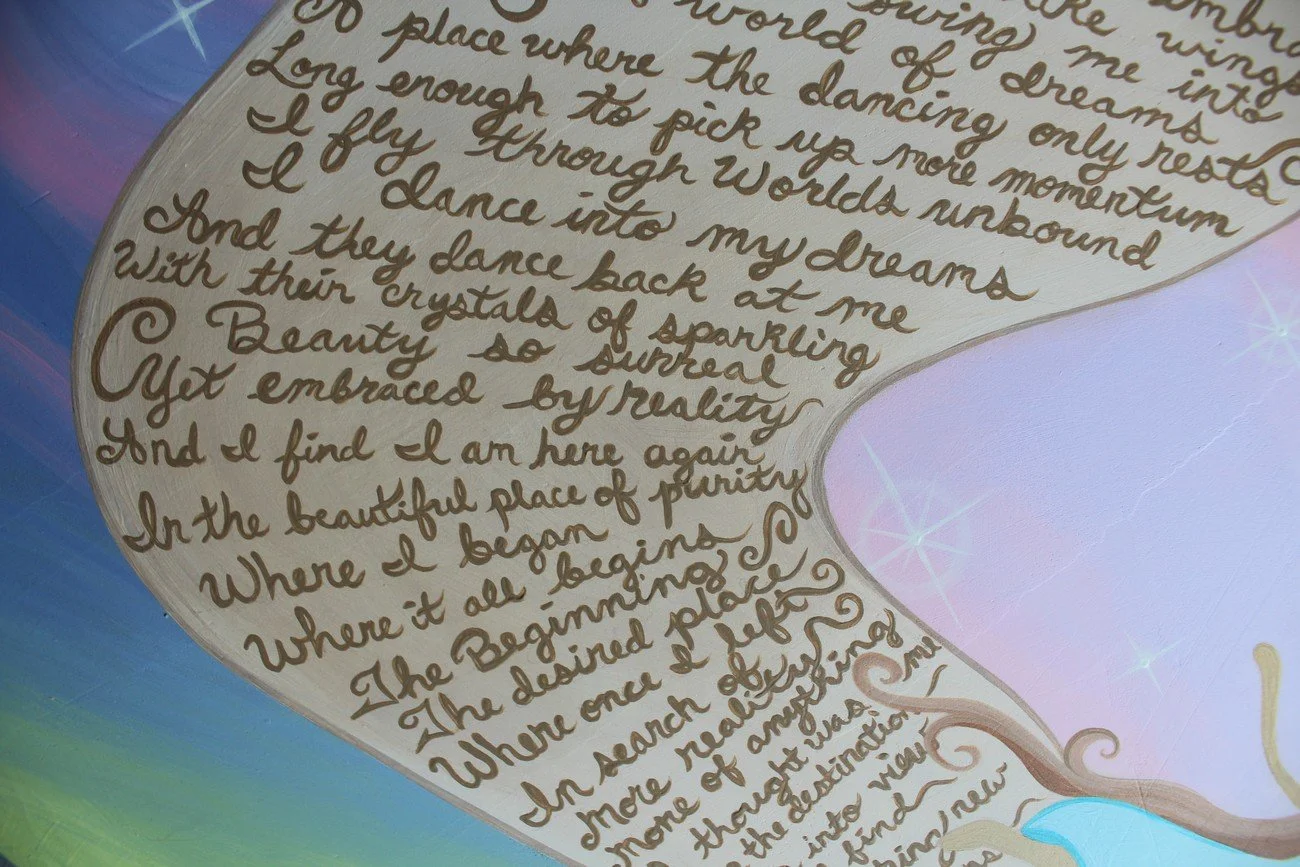 like wings
swing me into
world of dreams
A place where the dancing only rests
Long enough to pick up more momentum
I fly through Worlds unbound
I dance into my dreams
And they dance back at me
With their crystals of sparkling
Beauty so surreal
Yet embraced by reality
And I find I am here again
In the beautiful place of purity
Where I began
Where it all begins
The Beginning
The desired place
Where once I left
In search of
more reality
more of anything
thought was me
the destination
into view
find
new